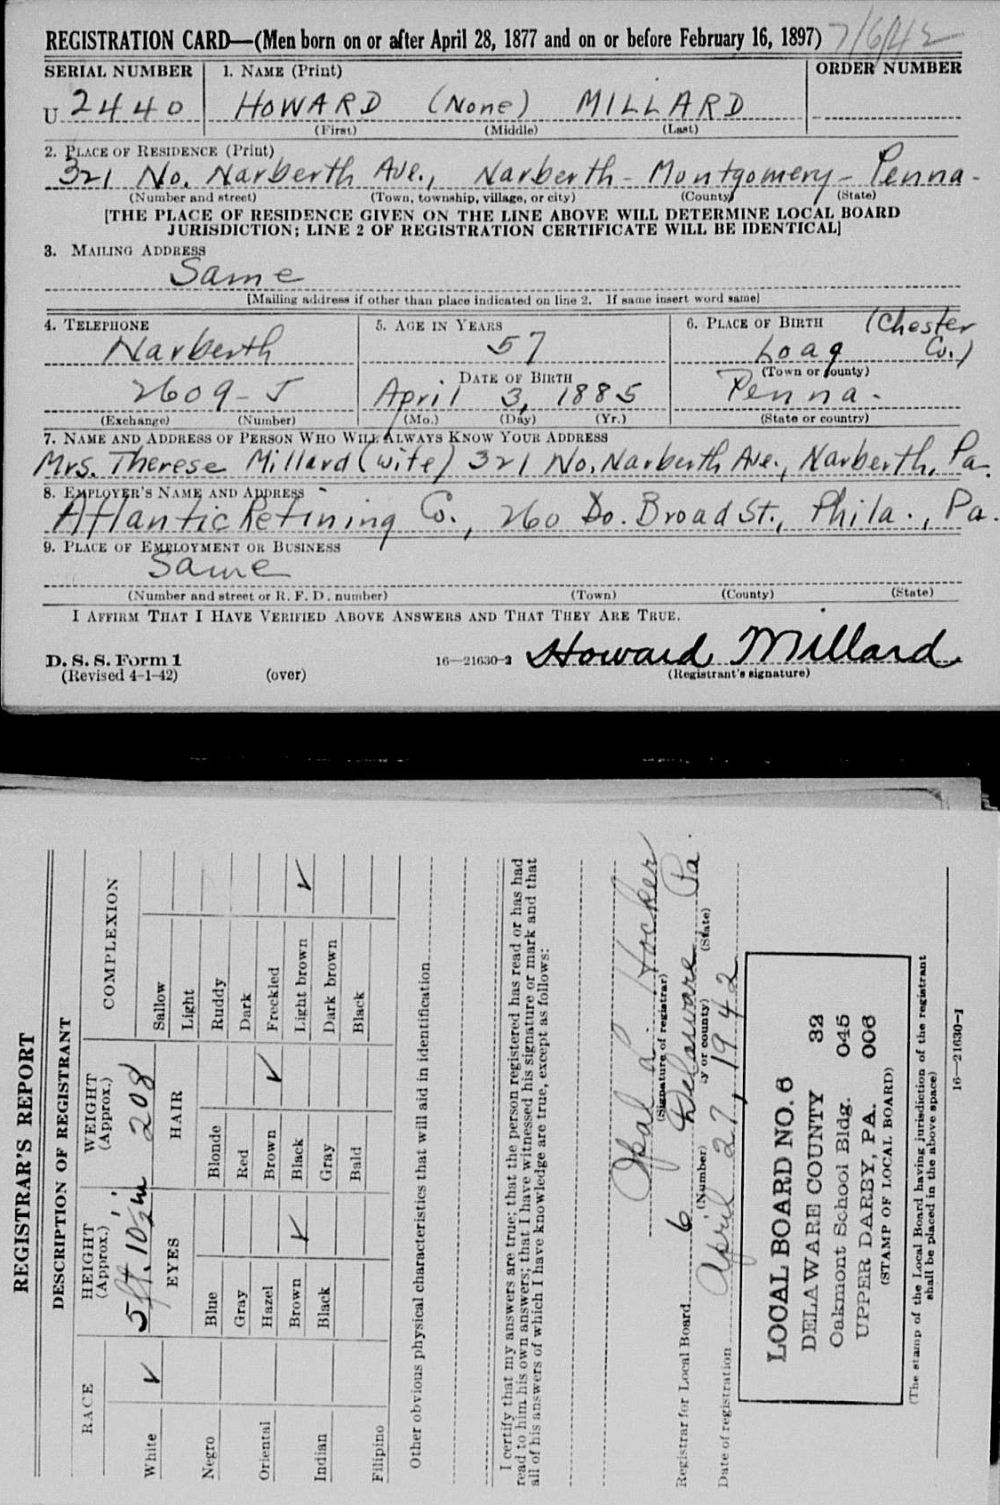 REGISTRATION CARD—(Men born on or after April 28, 1877 and on or before February 16, 1897) 7/6/42
SERIAL NUMBER 1. NAME (Print) ORDER NUMBER
U 2440 HOWARD (None) MILLARD
(First) (Middle) (Last)
2. PLACE OF RESIDENCE (Print)
321 No. Narberth Ave., Narberth - Montgomery - Penna -
(Number and street) (Town, township, village, or city) (County) (State)
[THE PLACE OF RESIDENCE GIVEN ON THE LINE ABOVE WILL DETERMINE LOCAL BOARD
JURISDICTION; LINE 2 OF REGISTRATION CERTIFICATE WILL BE IDENTICAL]
3. MAILING ADDRESS
Same
[Mailing address if other than place indicated on line 2. If same insert word same]
4. TELEPHONE 5. AGE IN YEARS 6. PLACE OF BIRTH (Chester
Narberth 57 Loag Co.)
DATE OF BIRTH (Town or county)
2609-J April 3, 1885 Penna.
(Exchange) (Number) (Mo.) (Day) (Yr.) (State or country)
7. NAME AND ADDRESS OF PERSON WHO WILL ALWAYS KNOW YOUR ADDRESS
Mrs. Therese Millard (wife) 321 No. Narberth Ave., Narberth, Pa.
8. EMPLOYER'S NAME AND ADDRESS
Atlantic Refining Co., 260 So. Broad St., Phila., Pa.
9. PLACE OF EMPLOYMENT OR BUSINESS
Same
(Number and street or R. F. D. number) (Town) (County) (State)
I AFFIRM THAT I HAVE VERIFIED ABOVE ANSWERS AND THAT THEY ARE TRUE.
D. S. S. Form 1 16—21630-2 Howard Millard
(Revised 4-1-42) (over) (Registrant's signature)
REGISTRAR'S REPORT
DESCRIPTION OF REGISTRANT
RACE HEIGHT (Approx.) WEIGHT (Approx.) COMPLEXION
White ✓ 5 ft. 10½ in 208 Sallow
EYES HAIR Light
Negro Blue Blonde Ruddy
Gray Red Dark
Oriental Hazel Brown ✓ Freckled
Brown ✓ Black Light brown ✓
Indian Black Gray Dark brown
Bald Black
Filipino
Other obvious physical characteristics that will aid in identification
I certify that my answers are true; that the person registered has read or has had
read to him his own answers; that I have witnessed his signature or mark and that
all of his answers of which I have knowledge are true, except as follows:
Opal A. Hocker
(Signature of registrar)
Registrar for Local Board 6 Delaware Pa.
(Number) y or county) (State)
Date of registration April 27, 1942
LOCAL BOARD NO. 6
DELAWARE COUNTY 32
Oakmont School Bldg. 045
UPPER DARBY, PA. 006
(STAMP OF LOCAL BOARD)
(The stamp of the Local Board having jurisdiction of the registrant
shall be placed in the above space)
16—21630-1